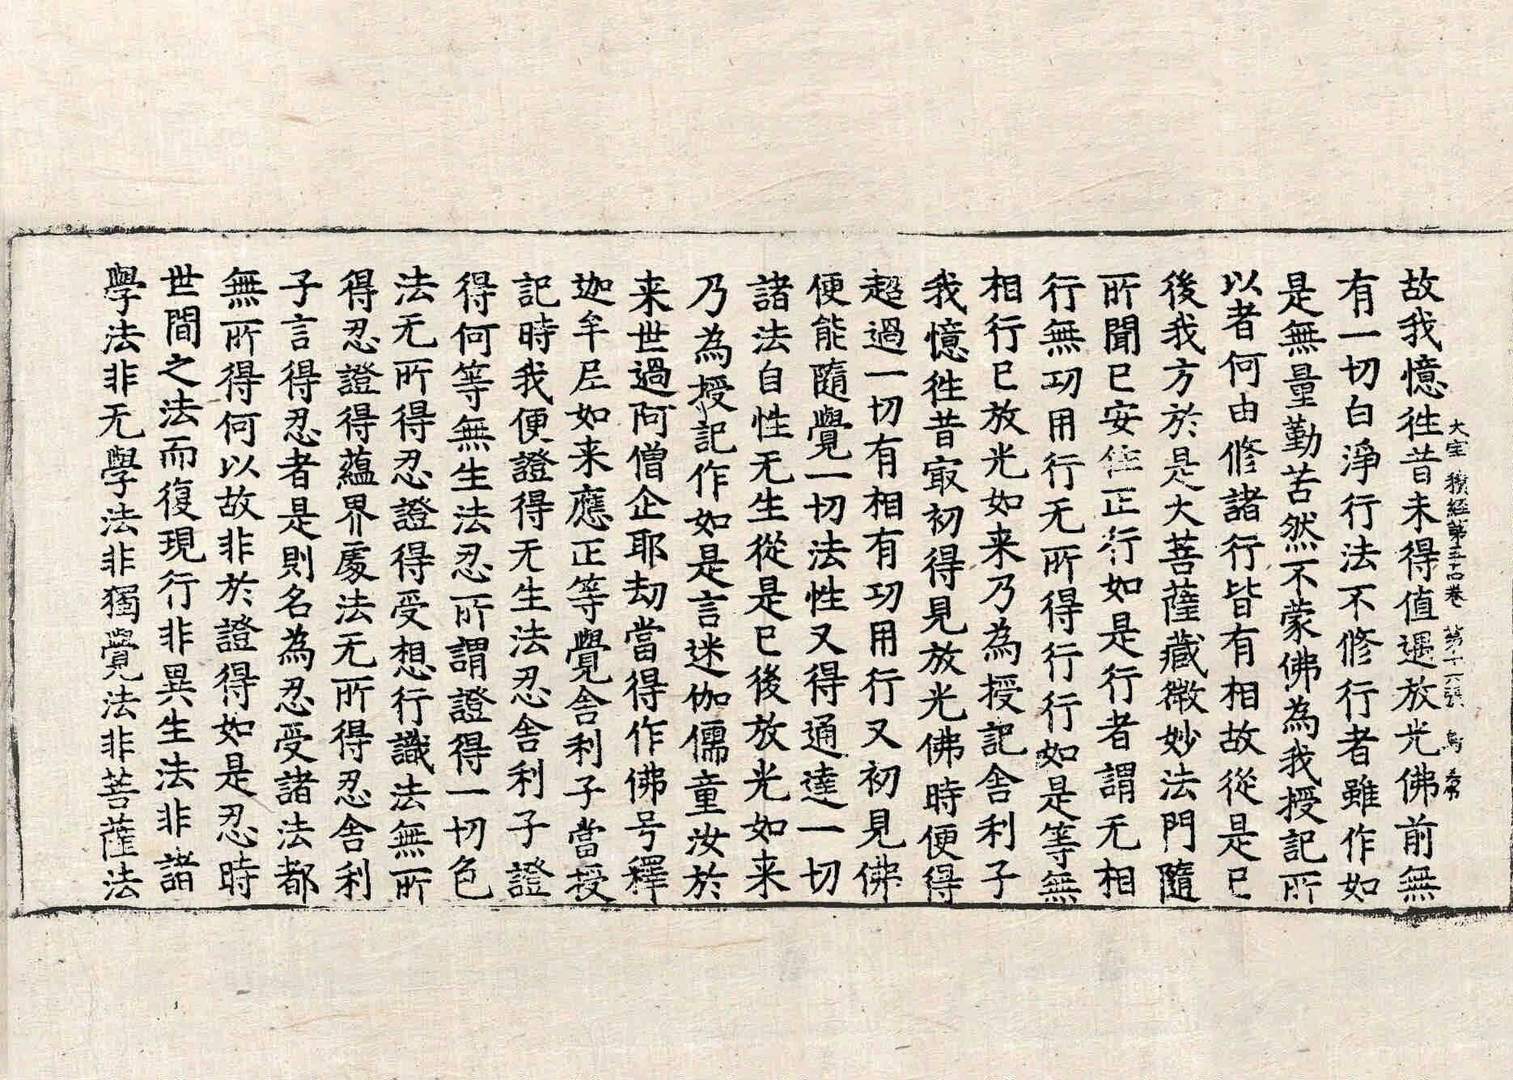 大宝積經第五十四卷 第十六張 鳥
故我憶徃昔未得值遇放光佛前無
有一切白淨行法不修行者雖作如
是無量勤苦然不蒙佛為我授記所
以者何由修諸行皆有相故從是已
後我方於是大菩薩藏微妙法門隨
所聞已安住正行如是行者謂无相
行無功用行无所得行行如是等無
相行已放光如来乃為授記舍利子
我憶徃昔㝡初得見放光佛時便得
超過一切有相有功用行又初見佛
便能隨覺一切法性又得通達一切
諸法自性无生從是已後放光如来
乃為授記作如是言迷伽儒童汝於
来世過阿僧企耶劫當得作佛号釋
迦牟尼如来應正等覺舍利子當授
記時我便證得无生法忍舍利子證
得何等無生法忍所謂證得一切色
法无所得忍證得受想行識法無所
得忍證得蘊界處法无所得忍舍利
子言得忍者是則名為忍受諸法都
無所得何以故非於證得如是忍時
世間之法而復現行非異生法非諸
學法非无學法非獨覺法非菩薩法